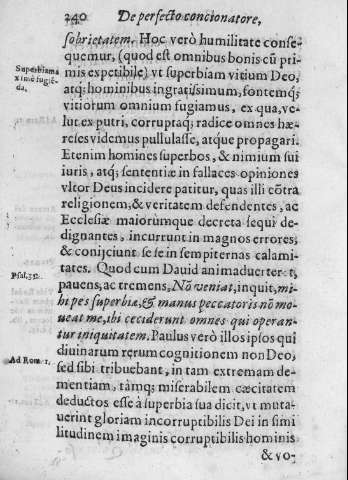 240 De perfecto concionatore,
sobrietatem. Hoc verò humilitate conse-
quemur, (quod est omnibus bonis cū pri-
Superbiam
mis expetibile) vt superbiam vitium Deo,
atq; hominibus ingratissimum, fontemq;
vitiorum omnium fugiamus, ex qua, ve-
lut ex putri, corruptaq; radice omnes hæ-
reses videmus pullulasse, atque propagari.
Etenim homines superbos, & nimium sui
iuris, atq; sententiæ in fallaces opiniones
vltor Deus incidere patitur, quas illi cōtra
religionem, & veritatem defendentes, ac
Ecclesiæ maiorùmque decreta sequi de-
dignantes, incurrunt in magnos errores,
& conijciunt se se in sempiternas calami-
tates. Quod cum Dauid animaduerteret,
Psal.35.
pauens, ac tremens, Nō veniat, inquit, mi-
hi pes superbiæ, & manus peccatoris nō mo-
ueat me, ibi ceciderunt omnes qui operan-
tur iniquitatem. Paulus verò illos ipsos qui
Ad Rom. 1.
diuinarum rerum cognitionem non Deo,
sed sibi tribuebant, in tam extremam de-
mentiam, tàmq; miserabilem cæcitatem
deductos esse à superbia sua dicit, vt muta-
uerint gloriam incorruptibilis Dei in simi
litudinem imaginis corruptibilis hominis
& vo-